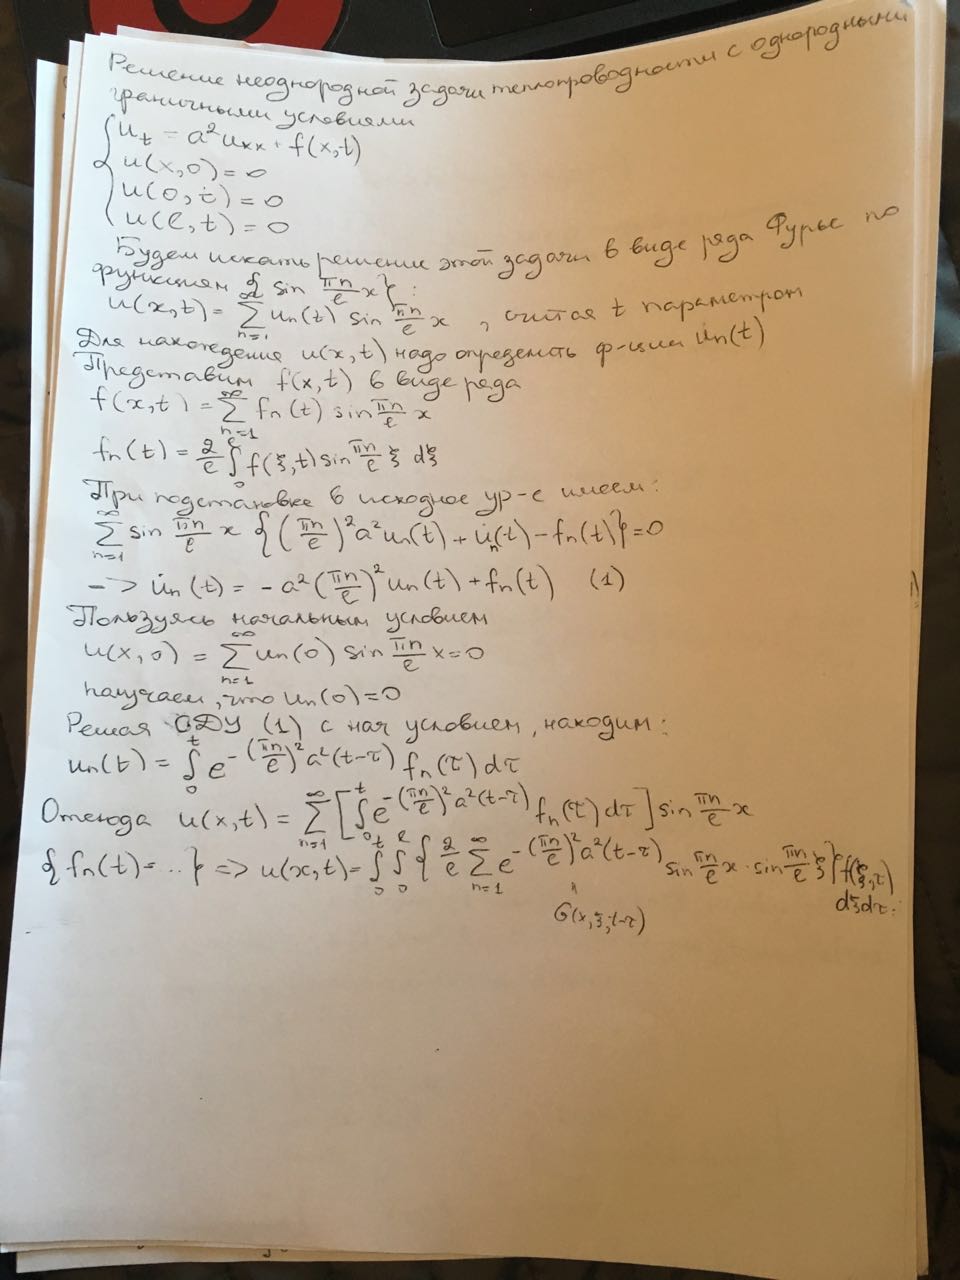 Решение неоднородной задачи теплопроводности с однородными
граничными условиями
{ u_t = a² u_xx + f(x,t)
u(x,0) = 0
u(0,t) = 0
u(ℓ,t) = 0
Будем искать решение этой задачи в виде ряда Фурье по
функциям { sin πn/ℓ x }:
u(x,t) = ∑_{n=1}^∞ u_n(t) sin πn/ℓ x , считая t параметром
Для нахождения u(x,t) надо определить ф-ции u_n(t)
Представим f(x,t) в виде ряда
f(x,t) = ∑_{n=1}^∞ f_n(t) sin πn/ℓ x
f_n(t) = 2/ℓ ∫_0^ℓ f(ξ,t) sin πn/ℓ ξ dξ
При подстановке в исходное ур-е имеем:
∑_{n=1}^∞ sin πn/ℓ x { (πn/ℓ)² a² u_n(t) + u̇_n(t) − f_n(t) } = 0
–> u̇_n(t) = − a² (πn/ℓ)² u_n(t) + f_n(t) (1)
Пользуясь начальным условием
u(x,0) = ∑_{n=1}^∞ u_n(0) sin πn/ℓ x = 0
получаем, что u_n(0) = 0
Решая ОДУ (1) с нач условием, находим:
u_n(t) = ∫_0^t e^{−(πn/ℓ)² a² (t−τ)} f_n(τ) dτ
Отсюда u(x,t) = ∑_{n=1}^∞ [ ∫_0^t e^{−(πn/ℓ)² a² (t−τ)} f_n(τ) dτ ] sin πn/ℓ x
{ f_n(t) = .. } => u(x,t) = ∫_0^t ∫_0^ℓ { 2/ℓ ∑_{n=1}^∞ e^{−(πn/ℓ)² a² (t−τ)} sin πn/ℓ x · sin πn/ℓ ξ } f(ξ,τ)
dξdτ.
G(x,ξ,t−τ)